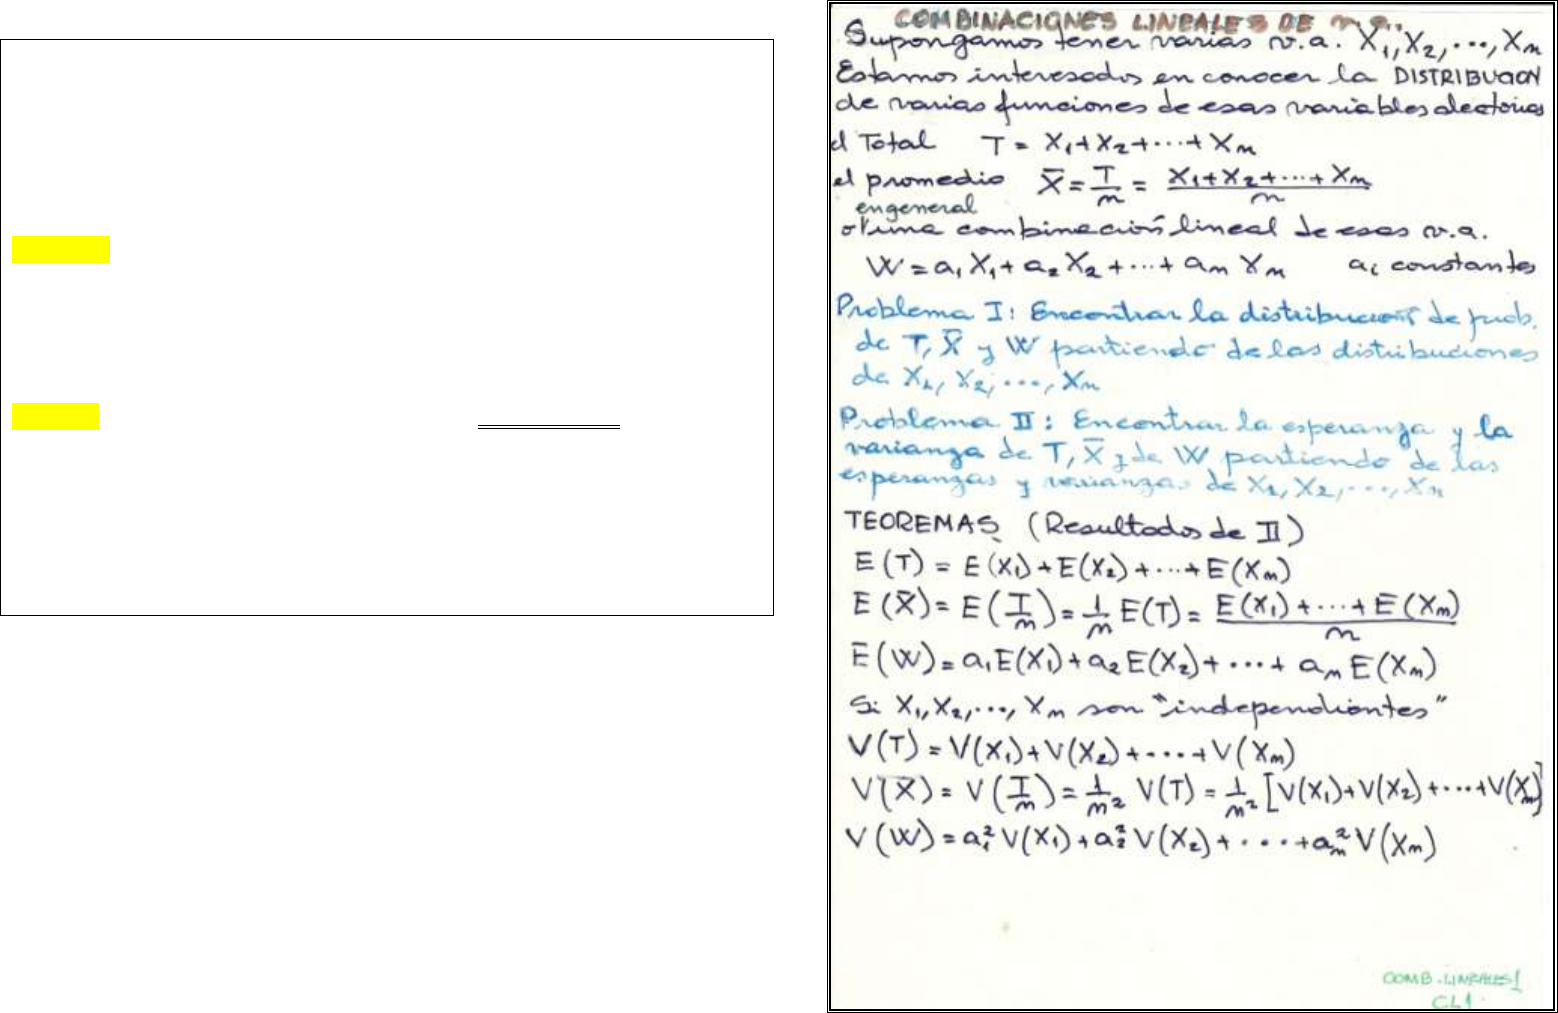 COMBINACIONES LINEALES DE
Supongamos tener varias v.a. X₁, X₂, ..., Xn
Estamos interesados en conocer la DISTRIBUCION
de varias funciones de esas variables aleatorias
el Total T = X₁+X₂+...+Xn
el promedio X̄ = T/n = (X₁+X₂+...+Xn)/n
en general
o una combinación lineal de esas v.a.
W = a₁X₁ + a₂X₂ + ... + anXn aᵢ constantes
Problema I: Encontrar la distribución de prob.
de T, X̄ y W partiendo de las distribuciones
de X₁, X₂, ..., Xn
Problema II: Encontrar la esperanza y la
varianza de T, X̄ y de W partiendo de las
esperanzas y varianzas de X₁, X₂, ..., Xn
TEOREMAS (Resultados de II)
E(T) = E(X₁) + E(X₂) + ... + E(Xn)
E(X̄) = E(T/n) = 1/n E(T) = (E(X₁) + ... + E(Xn))/n
E(W) = a₁E(X₁) + a₂E(X₂) + ... + anE(Xn)
Si X₁, X₂, ..., Xn son "independientes"
V(T) = V(X₁) + V(X₂) + .... + V(Xn)
V(X̄) = V(T/n) = 1/n² V(T) = 1/n² [V(X₁) + V(X₂) + .... + V(Xn)]
V(W) = a₁² V(X₁) + a₂² V(X₂) + .... + an² V(Xn)
COMB. LINEALES 1
CL1